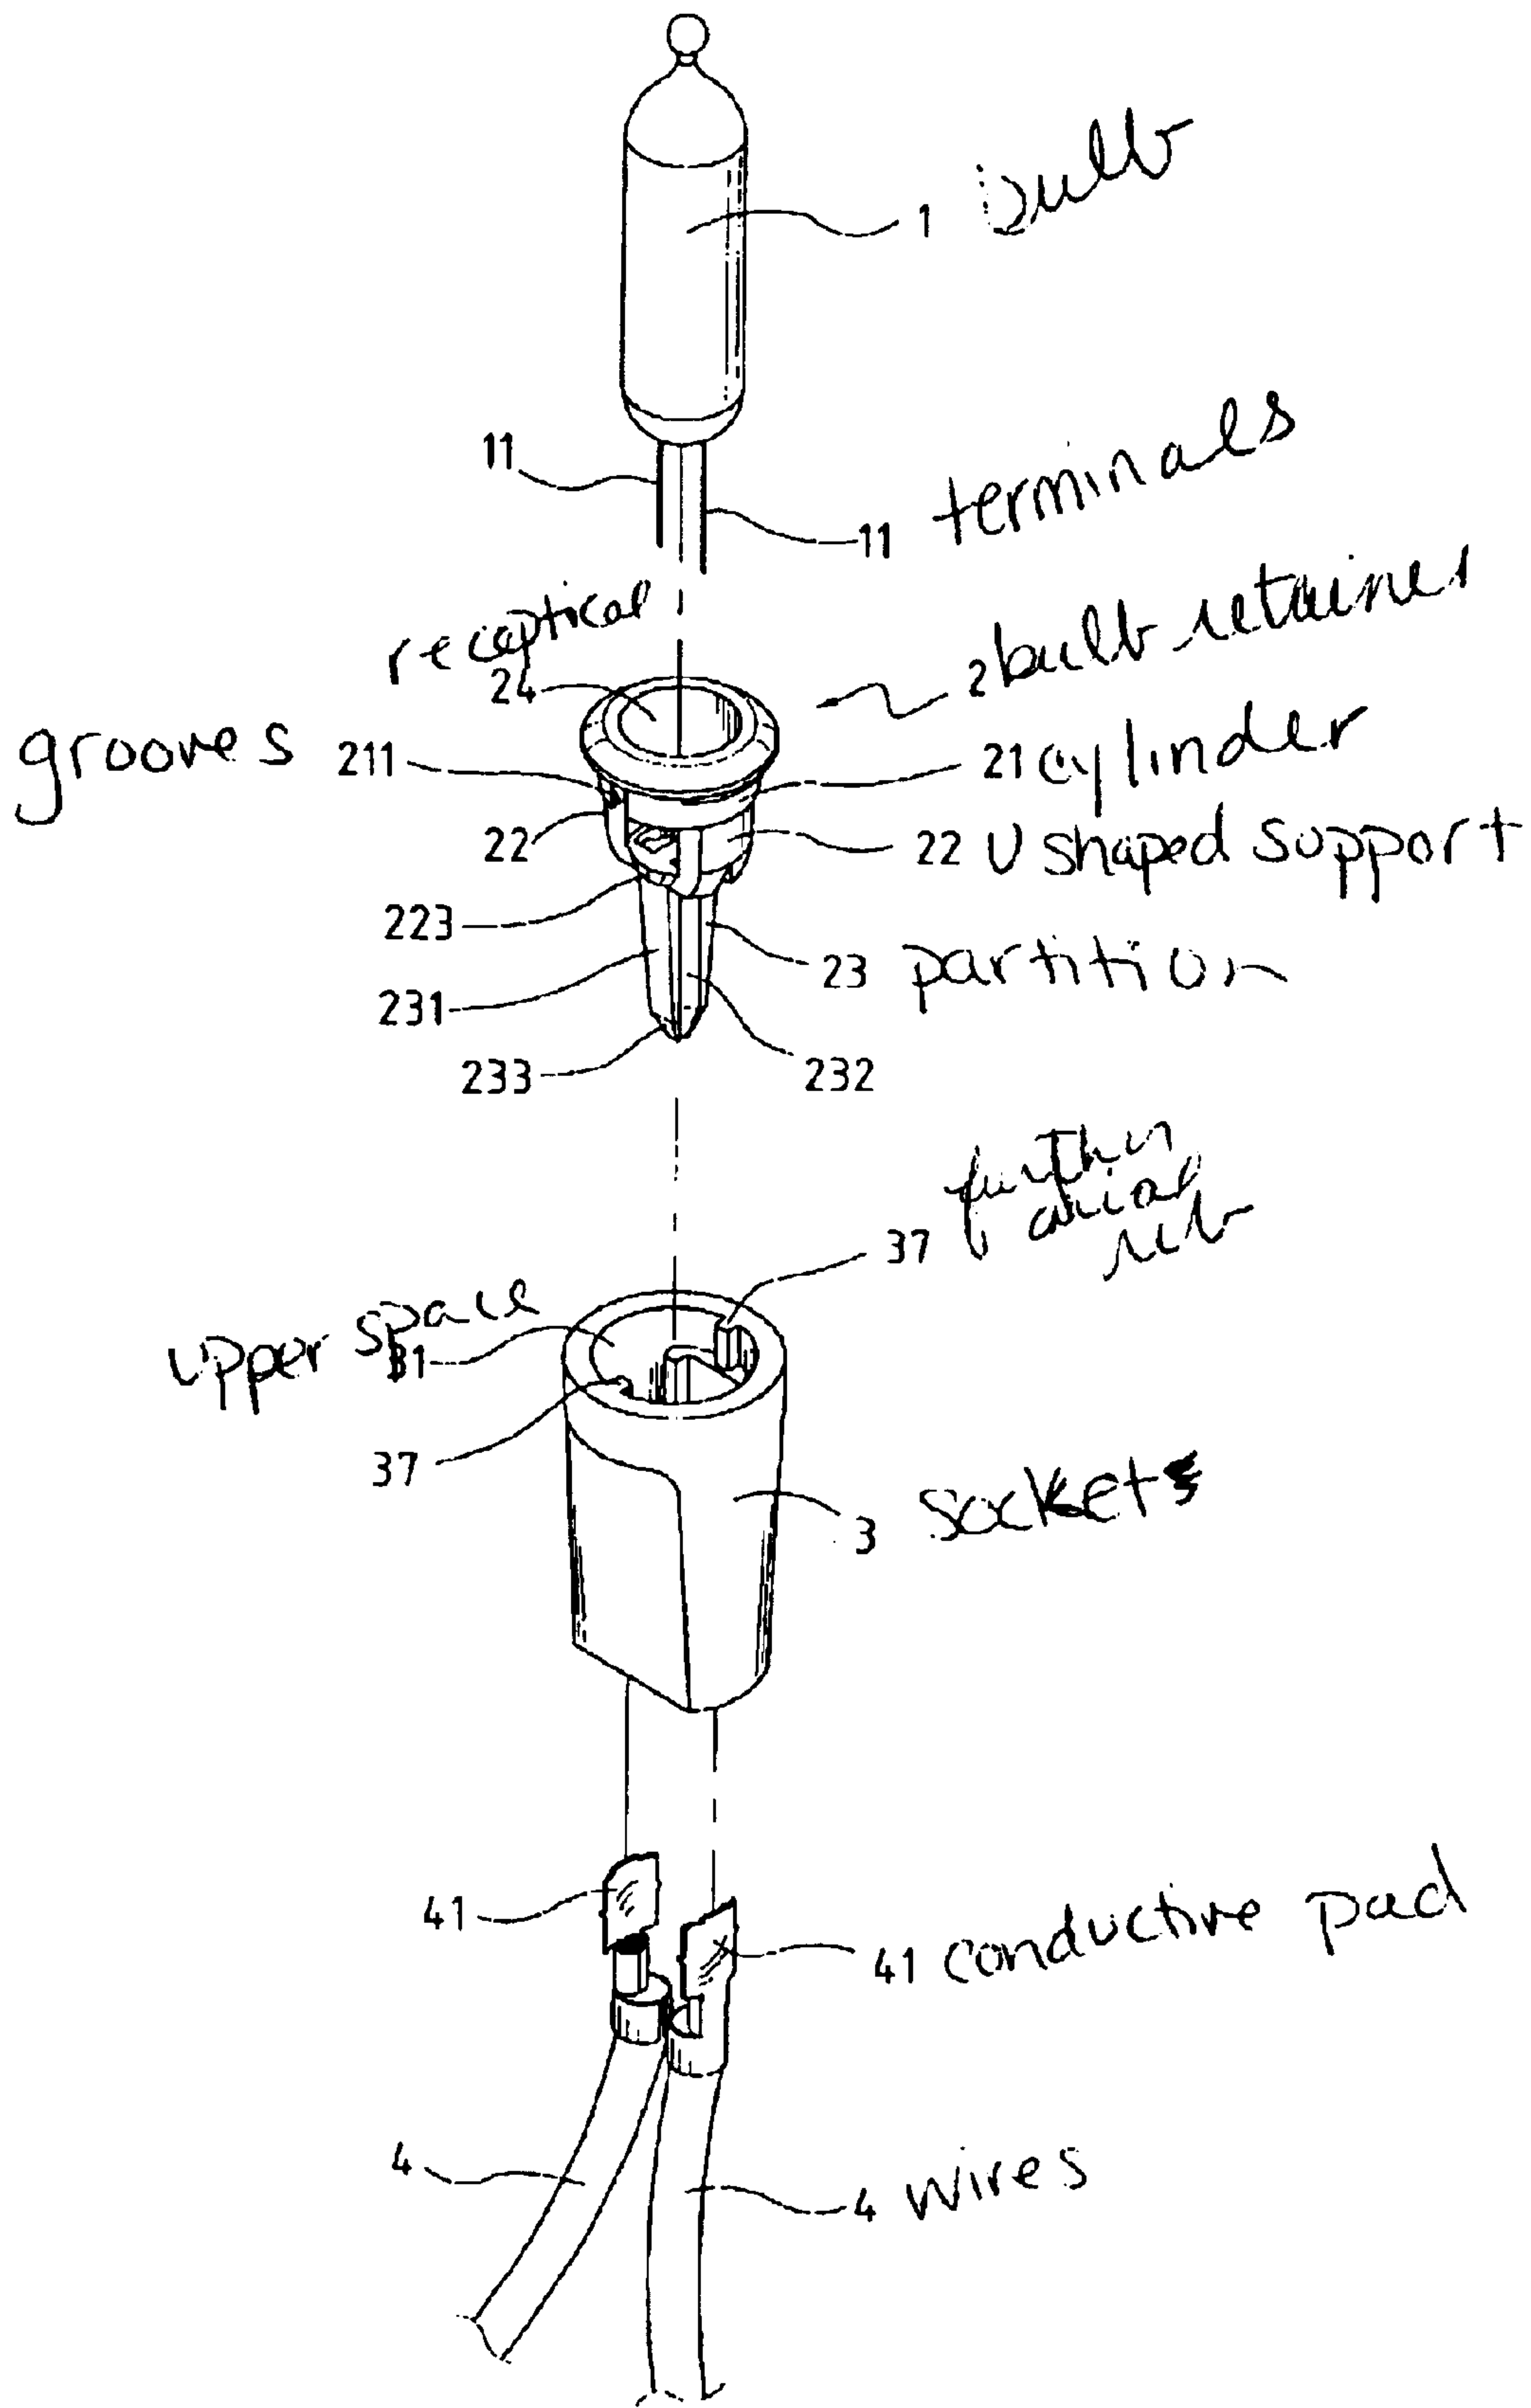 1 bulb
11
11 terminals
receptical
24
2 bulb retainer
grooves 211
21 cylinder
22
22 U shaped support
223
23 partition
231
233
232
37 further
axial
rib
upper space
31
37
3 sockets
41
41 conductive pad
4
4 wires